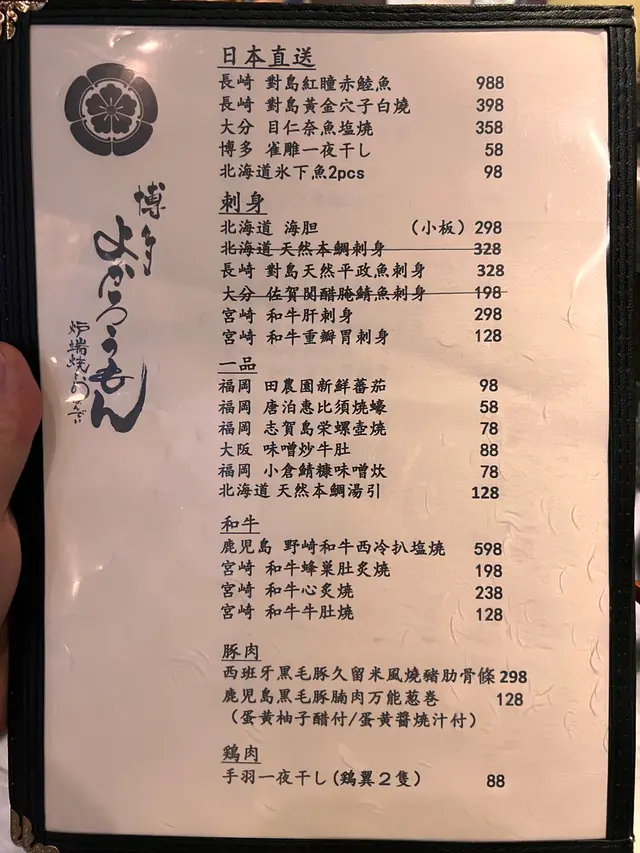 博多
よかろうもん
炉端焼
日本直送
長崎 對島紅瞳赤鯥魚 988
長崎 對島黃金穴子白燒 398
大分 目仁奈魚塩燒 358
博多 雀雕一夜干し 58
北海道氷下魚2pcs 98
刺身
北海道 海胆 （小板）298
北海道 天然本鯛刺身 328
長崎 對島天然平政魚刺身 328
大分 佐賀関醋腌鯖魚刺身 198
宮崎 和牛肝刺身 298
宮崎 和牛重瓣胃刺身 128
一品
福岡 田農園新鮮蕃茄 98
福岡 唐泊惠比須燒蠔 58
福岡 志賀島栄螺壺燒 78
大阪 味噌炒牛肚 88
福岡 小倉鯖糠味噌炊 78
北海道 天然本鯛湯引 128
和牛
鹿児島 野崎和牛西冷扒塩燒 598
宮崎 和牛蜂巢肚炙燒 198
宮崎 和牛心炙燒 238
宮崎 和牛牛肚燒 128
豚肉
西班牙黑毛豚久留米風燒豬肋骨條 298
鹿児島黑毛豚腩肉万能葱巻 128
（蛋黄柚子醋付/蛋黄醬燒汁付）
鶏肉
手羽一夜干し(鶏翼２隻） 88